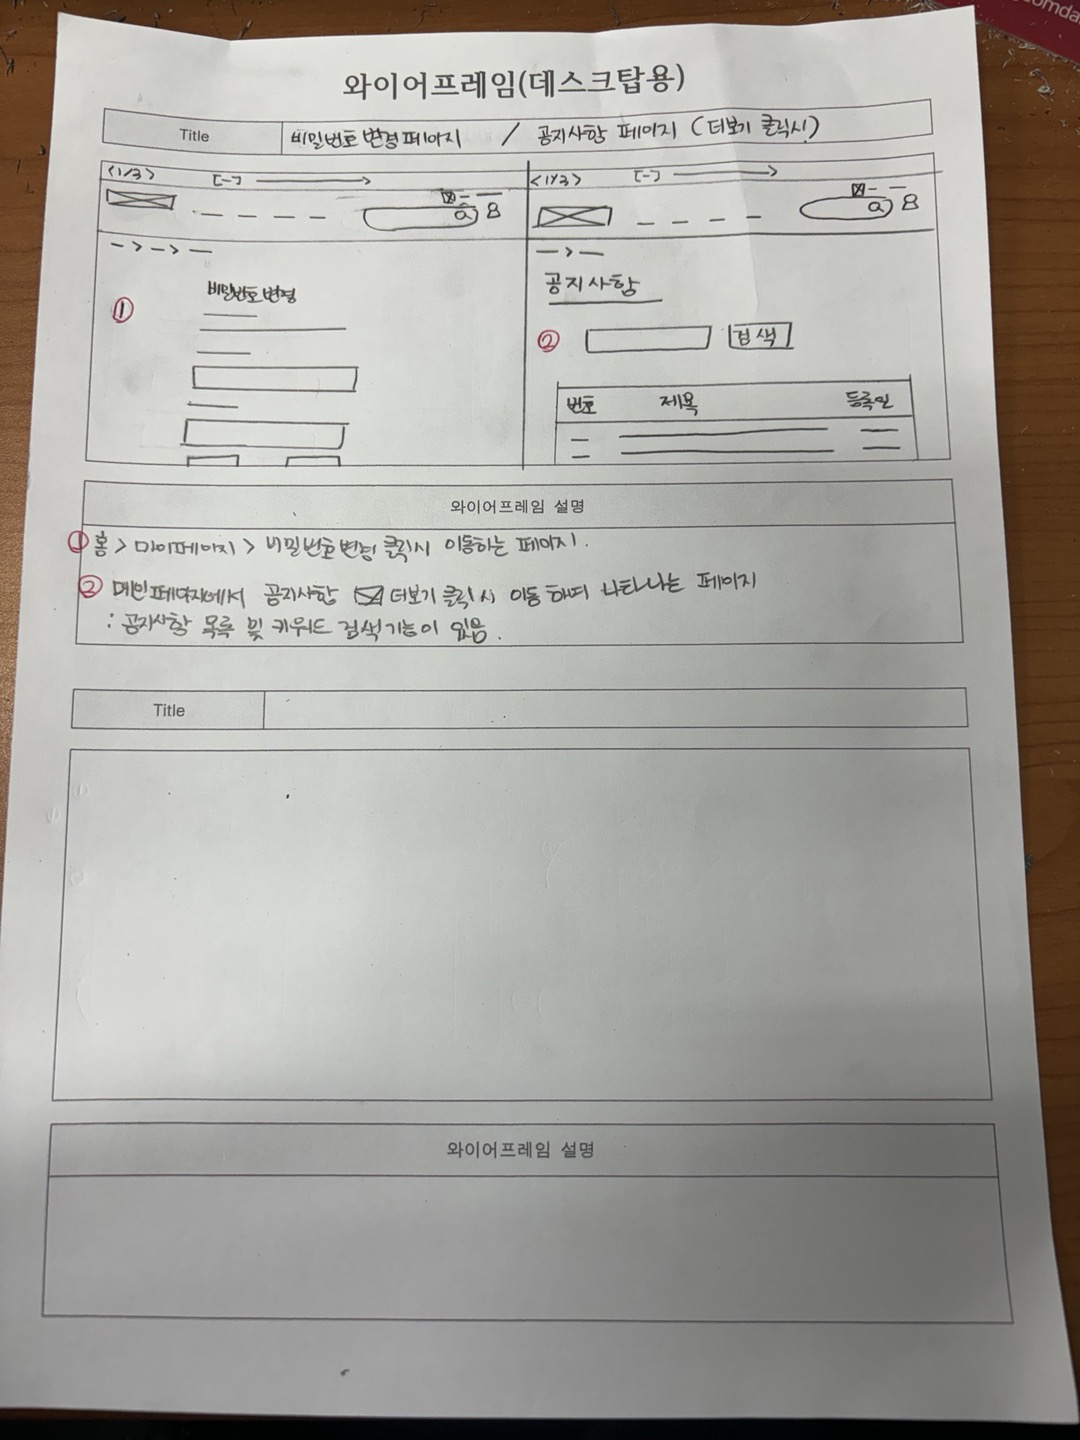 와이어프레임(데스크탑용)
Title
비밀번호 변경 페이지 / 공지사항 페이지 (더보기 클릭시)
<1/3>
<1/3>
비밀번호 변경
①
공지사항
②
검색
번호 제목 등록일
와이어프레임 설명
① 홈 > 마이페이지 > 비밀번호 변경 클릭시 이동하는 페이지.
② 메인페이지에서 공지사항 더보기 클릭시 이동 하며 나타나는 페이지
: 공지사항 목록 및 키워드 검색기능이 있음.
Title
와이어프레임 설명